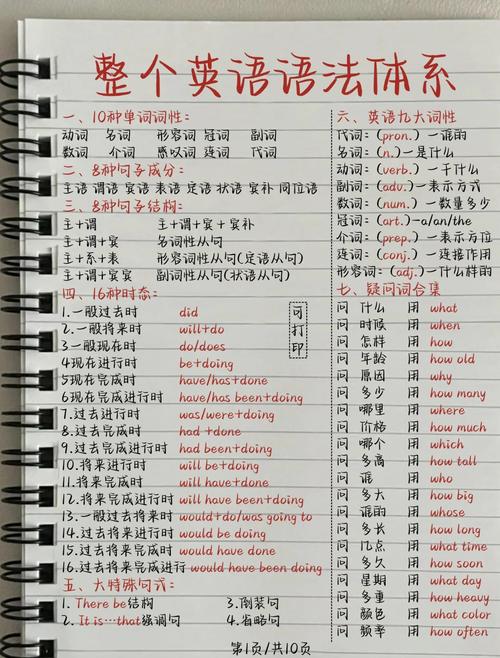 整个英语语法体系
一、10种单词词性:
动词 名词 形容词 冠词 副词
数词 介词 感叹词 连词 代词
二、8种句子成分:
主语 谓语 宾语 表语 定语 状语 宾补 同位语
三、8种句子结构:
主+谓 主+谓+宾+宾补
主+谓+宾 名词性从句
主+系+表 形容词性从句(定语从句)
主+谓+宾宾 副词性从句(状语从句)
四、16种时态:
可打印
1.一般过去时 did
2.一般将来时 will+do
3.一般现在时 do/does
4现在进行时 be+doing
5现在完成时 have/has+done
6现在完成进行时 have/has been+doing
7.过去进行时 was/were+doing
8.过去完成时 had +done
9.过去完成进行时 had been+doing
10.将来进行时 will be+doing
11.将来完成时 will have+done
12.将来完成进行时 will have been+doing
13.一般过去将来时 would+do/was going to
14.过去将来进行时 would be doing
15.过去将来完成时 would have done
16.过去将来完成进行时 would have been doing
五、大特殊句式:
1. There be结构 3.倒装句
2. It is…that强调句 4.省略句
六、英语九大词性
代词:(pron.)—谁的
名词:(n.)—是什么
动词:(verb.)—干什么
副词:(adv.)—表示方式
数词:(num.)—数量多少
冠词:(art.)-a/an/the
介词:(prep.)—表示方位
连词:(conj.)—连接作用
形容词:(adj.)—什么样的
七、疑问词合集
问 什么 用 what
问 时候 用 when
问 怎样 用 how
问 年龄 用 how old
问 原因 用 why
问 多少 用 how many
问 哪里 用 where
问 价格 用 how much
问 哪个 用 which
问 多高 用 how tall
问 谁 用 who
问 多大 用 how big
问 谁的 用 whose
问 多长 用 how long
问 几点 用 what time
问 多久 用 how soon
问 星期 用 what day
问 多重 用 how heavy
问 颜色 用 what color
问 频率 用 how often
第1页/共10页